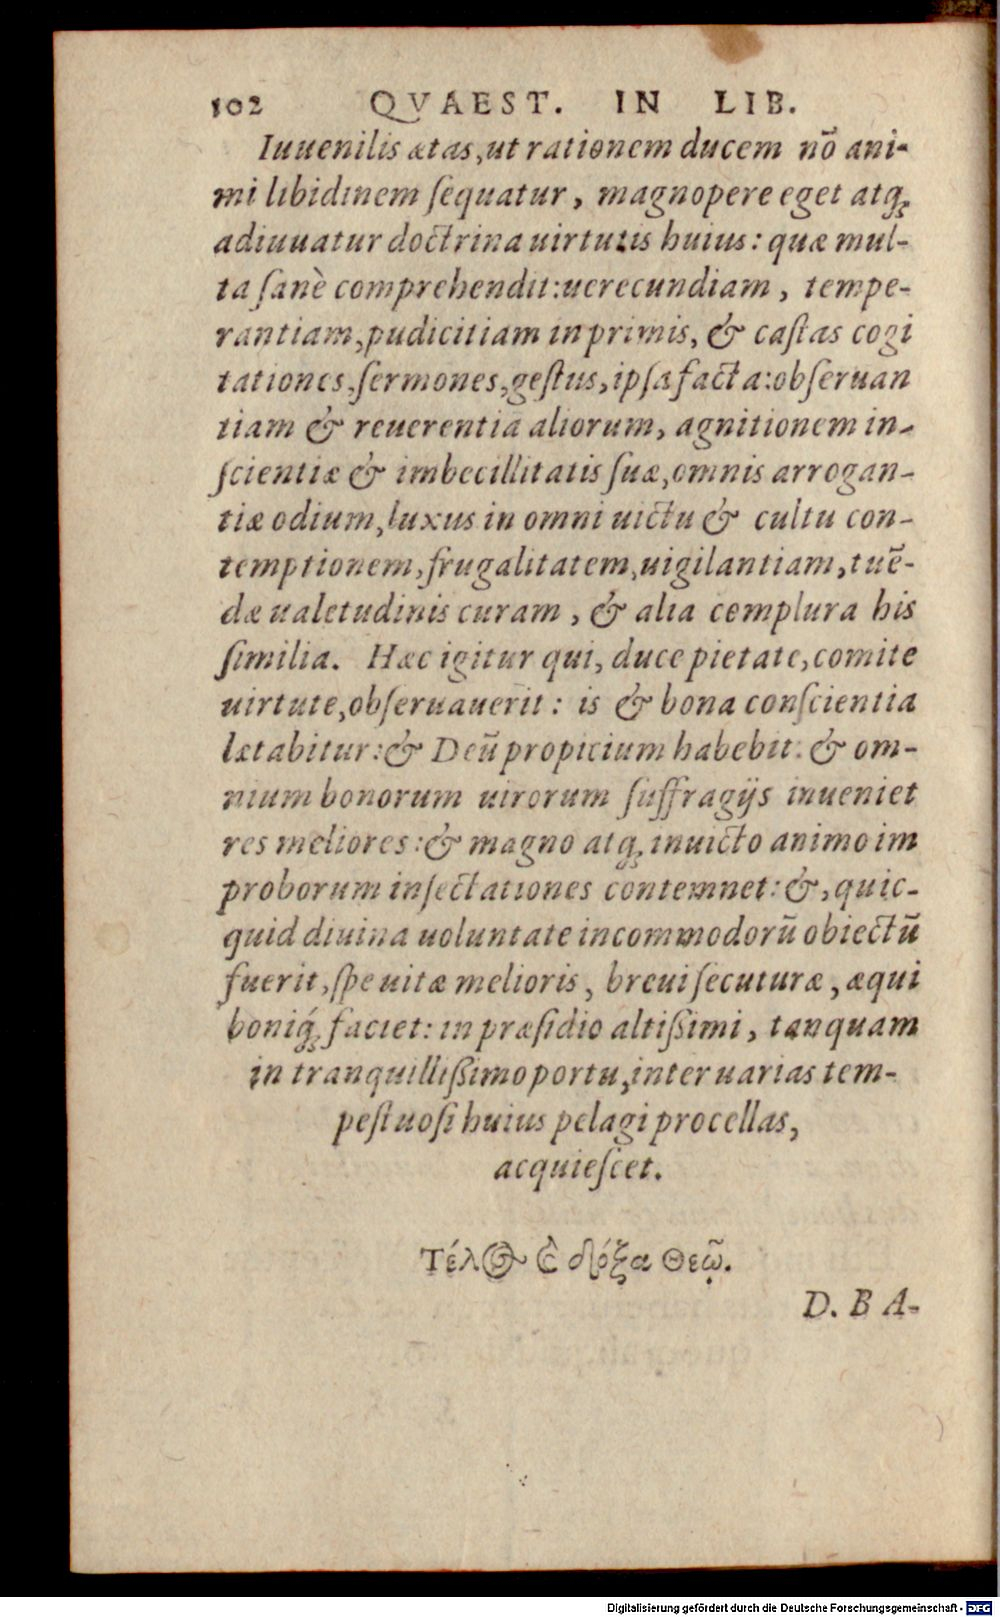 102 QVAEST. IN LIB.
Iuuenilis ætas,ut rationem ducem nõ ani-
mi libidinem ſequatur, magnopere eget atq;
adiuuatur doctrina uirtutis huius: quæ mul-
ta ſanè comprehendit:uerecundiam, tempe-
rantiam,pudicitiam inprimis, & caſtas cogi
tationes,ſermones,geſtus,ipſa facta:obſeruan
tiam & reuerentiã aliorum, agnitionem in-
ſcientiæ & imbecillitatis ſuæ,omnis arrogan-
tiæ odium,luxus in omni uictu & cultu con-
temptionem,frugalitatem,uigilantiam,tuẽ-
dæ ualetudinis curam, & alia complura his
ſimilia. Hæc igitur qui, duce pietate,comite
uirtute,obſeruauerit: is & bona conſcientia
lætabitur:& Deũ propicium habebit: & om-
nium bonorum uirorum ſuffragijs inueniet
res meliores:& magno atq; inuicto animo im
proborum inſectationes contemnet:&,quic-
quid diuina uoluntate incommodorũ obiectũ
fuerit,ſpe uitæ melioris, breui ſecuturæ, æqui
boniq́; faciet: in præſidio altißimi, tanquam
in tranquillißimo portu,inter uarias tem-
peſtuoſi huius pelagi procellas,
acquieſcet.
Τέλος ϗ̀ δόξα Θεῷ.
D. B A-
Digitalisierung gefördert durch die Deutsche Forschungsgemeinschaft - DFG